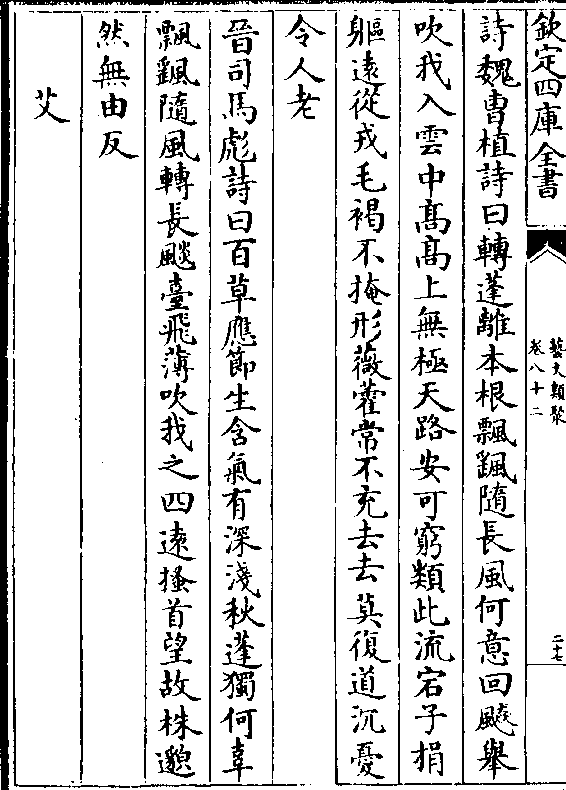 欽定四庫全書
藝文類聚
卷八十二
二十七
詩魏曹植詩曰轉蓬離本根飄颻隨長風何意回飈舉
吹我入雲中髙髙上無極天路安可窮類此流宕子捐
軀逺從戎毛褐不掩形薇藿常不充去去莫復道沉憂
令人老
晉司馬彪詩曰百草應節生含氣有深淺秋蓬獨何辜
飄颻隨風轉長飈臺飛薄吹我之四逺搔首望故株邈
然無由反
艾